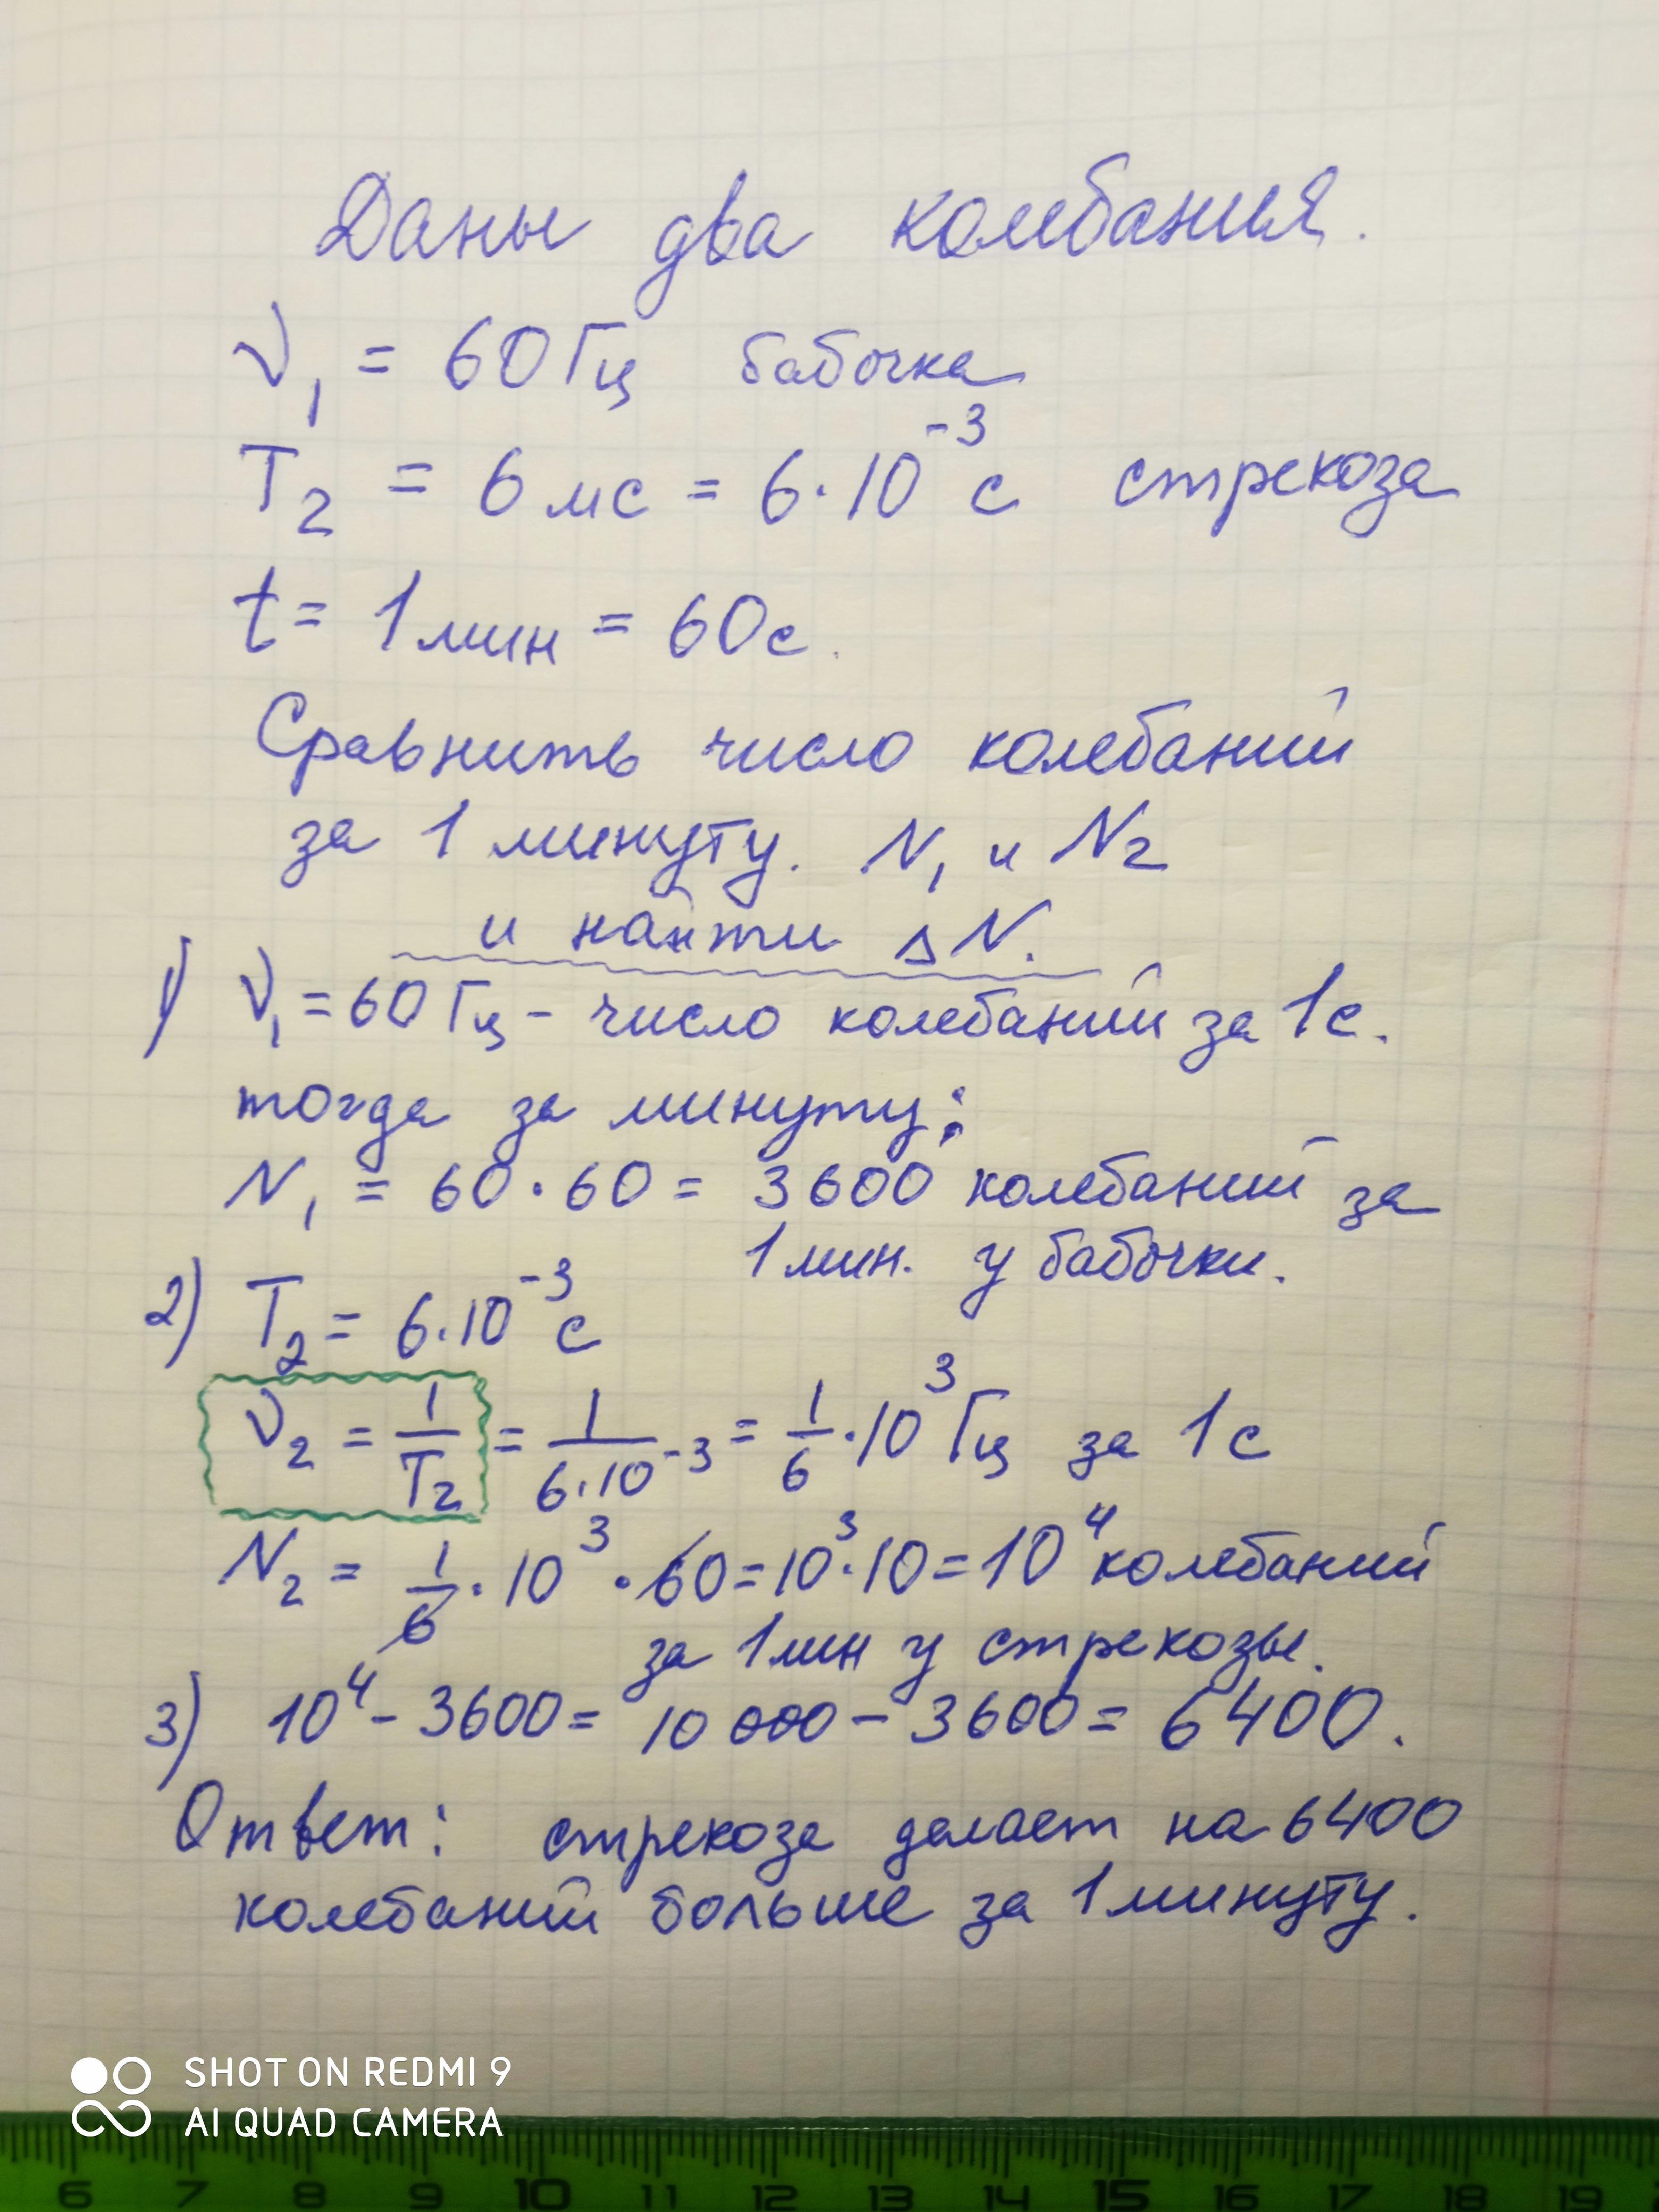 Даны два колебания.
ν₁ = 60 Гц бабочка
T₂ = 6 мс = 6·10⁻³ с стрекоза
t = 1 мин = 60 с.
Сравнить число колебаний
за 1 минуту. N₁ и N₂
и найти ΔN.
1) ν₁ = 60 Гц – число колебаний за 1 с.
тогда за минуту:
N₁ = 60·60 = 3600 колебаний за
1 мин. у бабочки.
2) T₂ = 6·10⁻³ с
ν₂ = 1/T₂ = 1/(6·10⁻³) = 1/6·10³ Гц за 1 с
N₂ = 1/6·10³·60 = 10³·10 = 10⁴ колебаний
за 1 мин у стрекозы.
3) 10⁴ - 3600 = 10 000 - 3600 = 6400.
Ответ: стрекоза делает на 6400
колебаний больше за 1 минуту.
SHOT ON REDMI 9
AI QUAD CAMERA
6 7 8 9 10 11 12 13 14 15 16 17 18 19